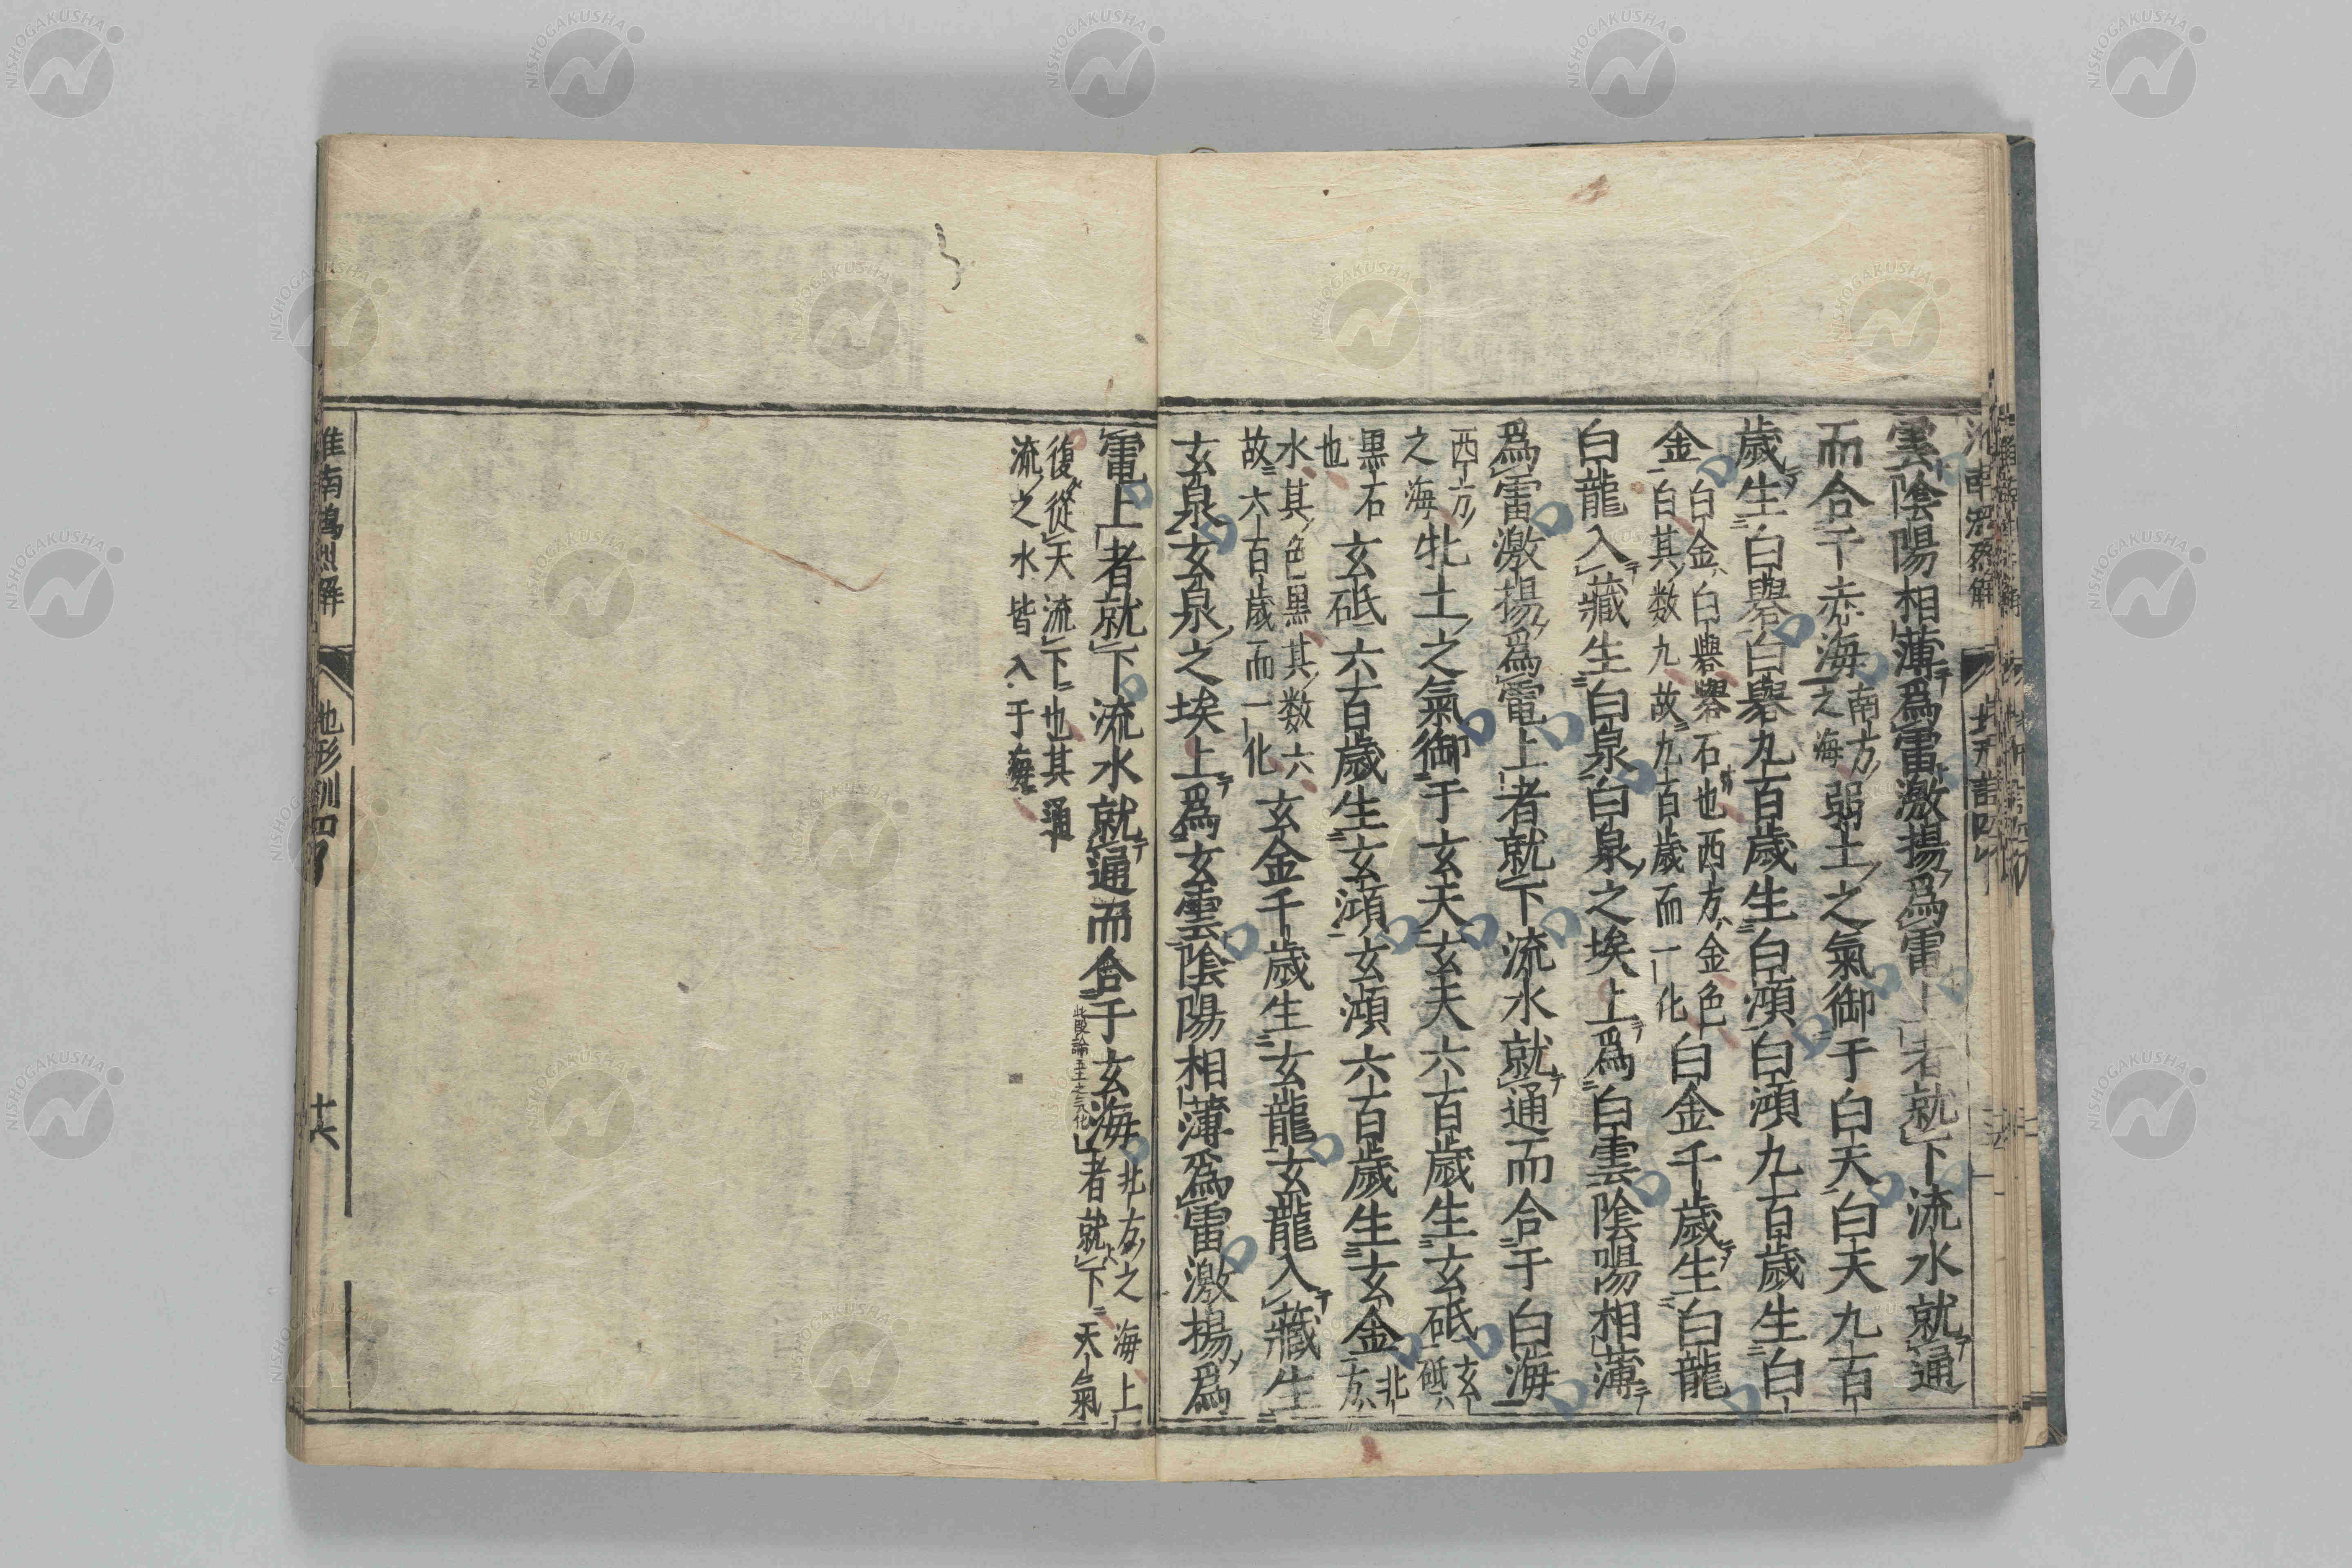 雲陰陽相薄爲雷激揚爲電上者就下流水就通
而合于赤海南方之海弱土之氣御于白天白天九百
歲生白礜白礜九百歲生白澒白澒九百歲生白
金白金白礜礜石也西方金色白其数九故九百歲而一化白金千歲生白龍
白龍入藏生白泉白泉之埃上爲白雲陰陽相薄
爲雷激揚爲電上者就下流水就通而合于白海
西方之海牝土之氣御于玄天玄天六百歲生玄砥玄砥
黒石也玄砥六百歲生玄澒玄澒六百歲生玄金北方
水其色黒其数六故六百歲而一化玄金千歲生玄龍玄龍入藏生
玄泉玄泉之埃上爲玄雲陰陽相薄爲雷激揚爲
電上者就下流水就通而合于玄海北方之海上者就下天氣
此段論五土之氣化
復從天流下也其通流之水皆入于海
淮南鴻烈解
地形訓四
十六
NISHOGAKUSHA